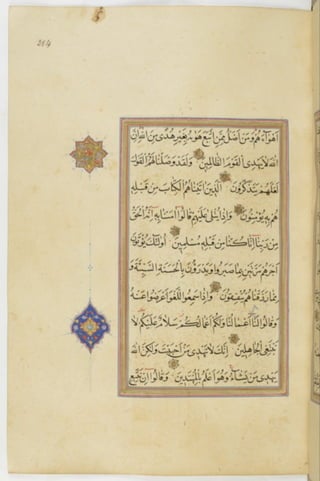 اَهْوَآءَهُمْ وَمَنْ اَضَلُّ مِمَّنِ اتَّبَعَ هَوٰيهُ بِغَيْرِ هُدًى مِنَ اللّٰهِ اِنَّ
اللّٰهَ لَا يَهْدِى الْقَوْمَ الظَّالِمِينَ وَلَقَدْ وَصَّلْنَا لَهُمُ الْقَوْلَ
لَعَلَّهُمْ يَتَذَكَّرُونَ الَّذِينَ اٰتَيْنَاهُمُ الْكِتَابَ مِنْ قَبْلِهِ
هُمْ بِهِ يُؤْمِنُونَ وَاِذَا يُتْلٰى عَلَيْهِمْ قَالُوا اٰمَنَّا بِهِ اِنَّهُ الْحَقُّ
مِنْ رَبِّنَا اِنَّا كُنَّا مِنْ قَبْلِهِ مُسْلِمِينَ اُولٰئِكَ يُؤْتَوْنَ
اَجْرَهُمْ مَرَّتَيْنِ بِمَا صَبَرُوا وَيَدْرَؤُنَ بِالْحَسَنَةِ السَّيِّئَةَ وَ
مِمَّا رَزَقْنَاهُمْ يُنْفِقُونَ وَاِذَا سَمِعُوا اللَّغْوَ اَعْرَضُوا عَنْهُ
وَقَالُوا لَنَا اَعْمَالُنَا وَلَكُمْ اَعْمَالُكُمْ سَلَامٌ عَلَيْكُمْ لَا
نَبْتَغِى الْجَاهِلِينَ اِنَّكَ لَا تَهْدِى مَنْ اَحْبَبْتَ وَلٰكِنَّ اللّٰهَ
يَهْدِى مَنْ يَشَآءُ وَهُوَ اَعْلَمُ بِالْمُهْتَدِينَ وَقَالُوا اِنْ نَتَّبِعِ